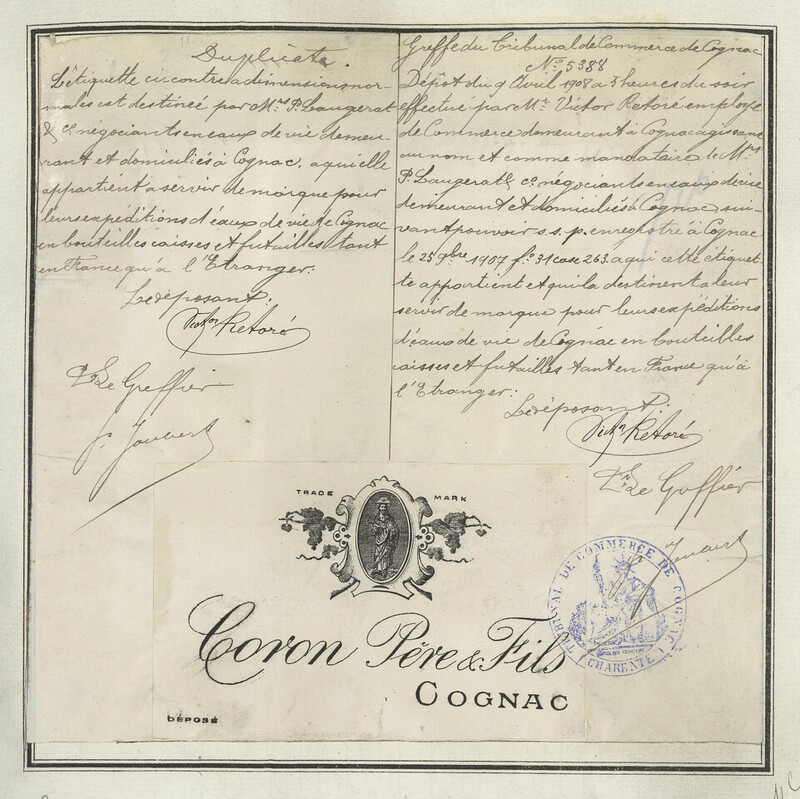 Duplicata.
L'étiquette ci-contre a dimensions nor-
males est destinée par Mrs P. Laugerat
& Cie négociants en eaux de vie demeu-
rant et domiciliés à Cognac, a qui elle
appartient a servir de marque pour
leurs expéditions d'eaux de vie de Cognac
en bouteilles caisses et futailles tant
en France qu'à l'Etranger:
Le déposant:
Victor Retoré
Le Greffier
Greffe du Tribunal de Commerce de Cognac
No 5388
Dépôt du 9 Avril 1908 a 3 heures du soir
effectué par Mr Victor Retoré employé
de Commerce demeurant à Cognac agissant
au nom et comme mandataire de Mrs
P. Laugerat & Cie négociants en eaux de vie
demeurant et domiciliés à Cognac, sui-
vant pouvoir s.s.p. enregistré à Cognac
le 25 9bre 1907 fo 31 case 263. a qui cette étiquet-
te appartient et qui la destinent a leur
servir de marque pour leurs expéditions
d'eaux de vie de Cognac en bouteilles
caisses et futailles tant en France qu'à
l'Etranger:
Le déposant:
Victor Retoré
Le Greffier
TRADE MARK
Coron Père & Fils
COGNAC
DÉPOSÉ
TRIBUNAL DE COMMERCE DE COGNAC
(CHARENTE)